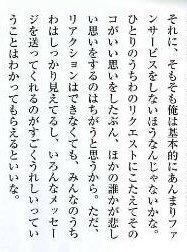 それに、そもそも俺は基本的にあんまりファ
ンサービスをしないほうなんじゃないかな。
ひとりのうちわのリクエストにこたえてその
コがいい思いをしたぶん、ほかの誰かが悲し
い思いをするのはちがうと思うから。ただ、
リアクションはできなくても、みんなのうち
わはしっかり見えてるし、いろんなメッセー
ジを送ってくれるのがすごくうれしいってい
うことはわかってもらえるといいな。